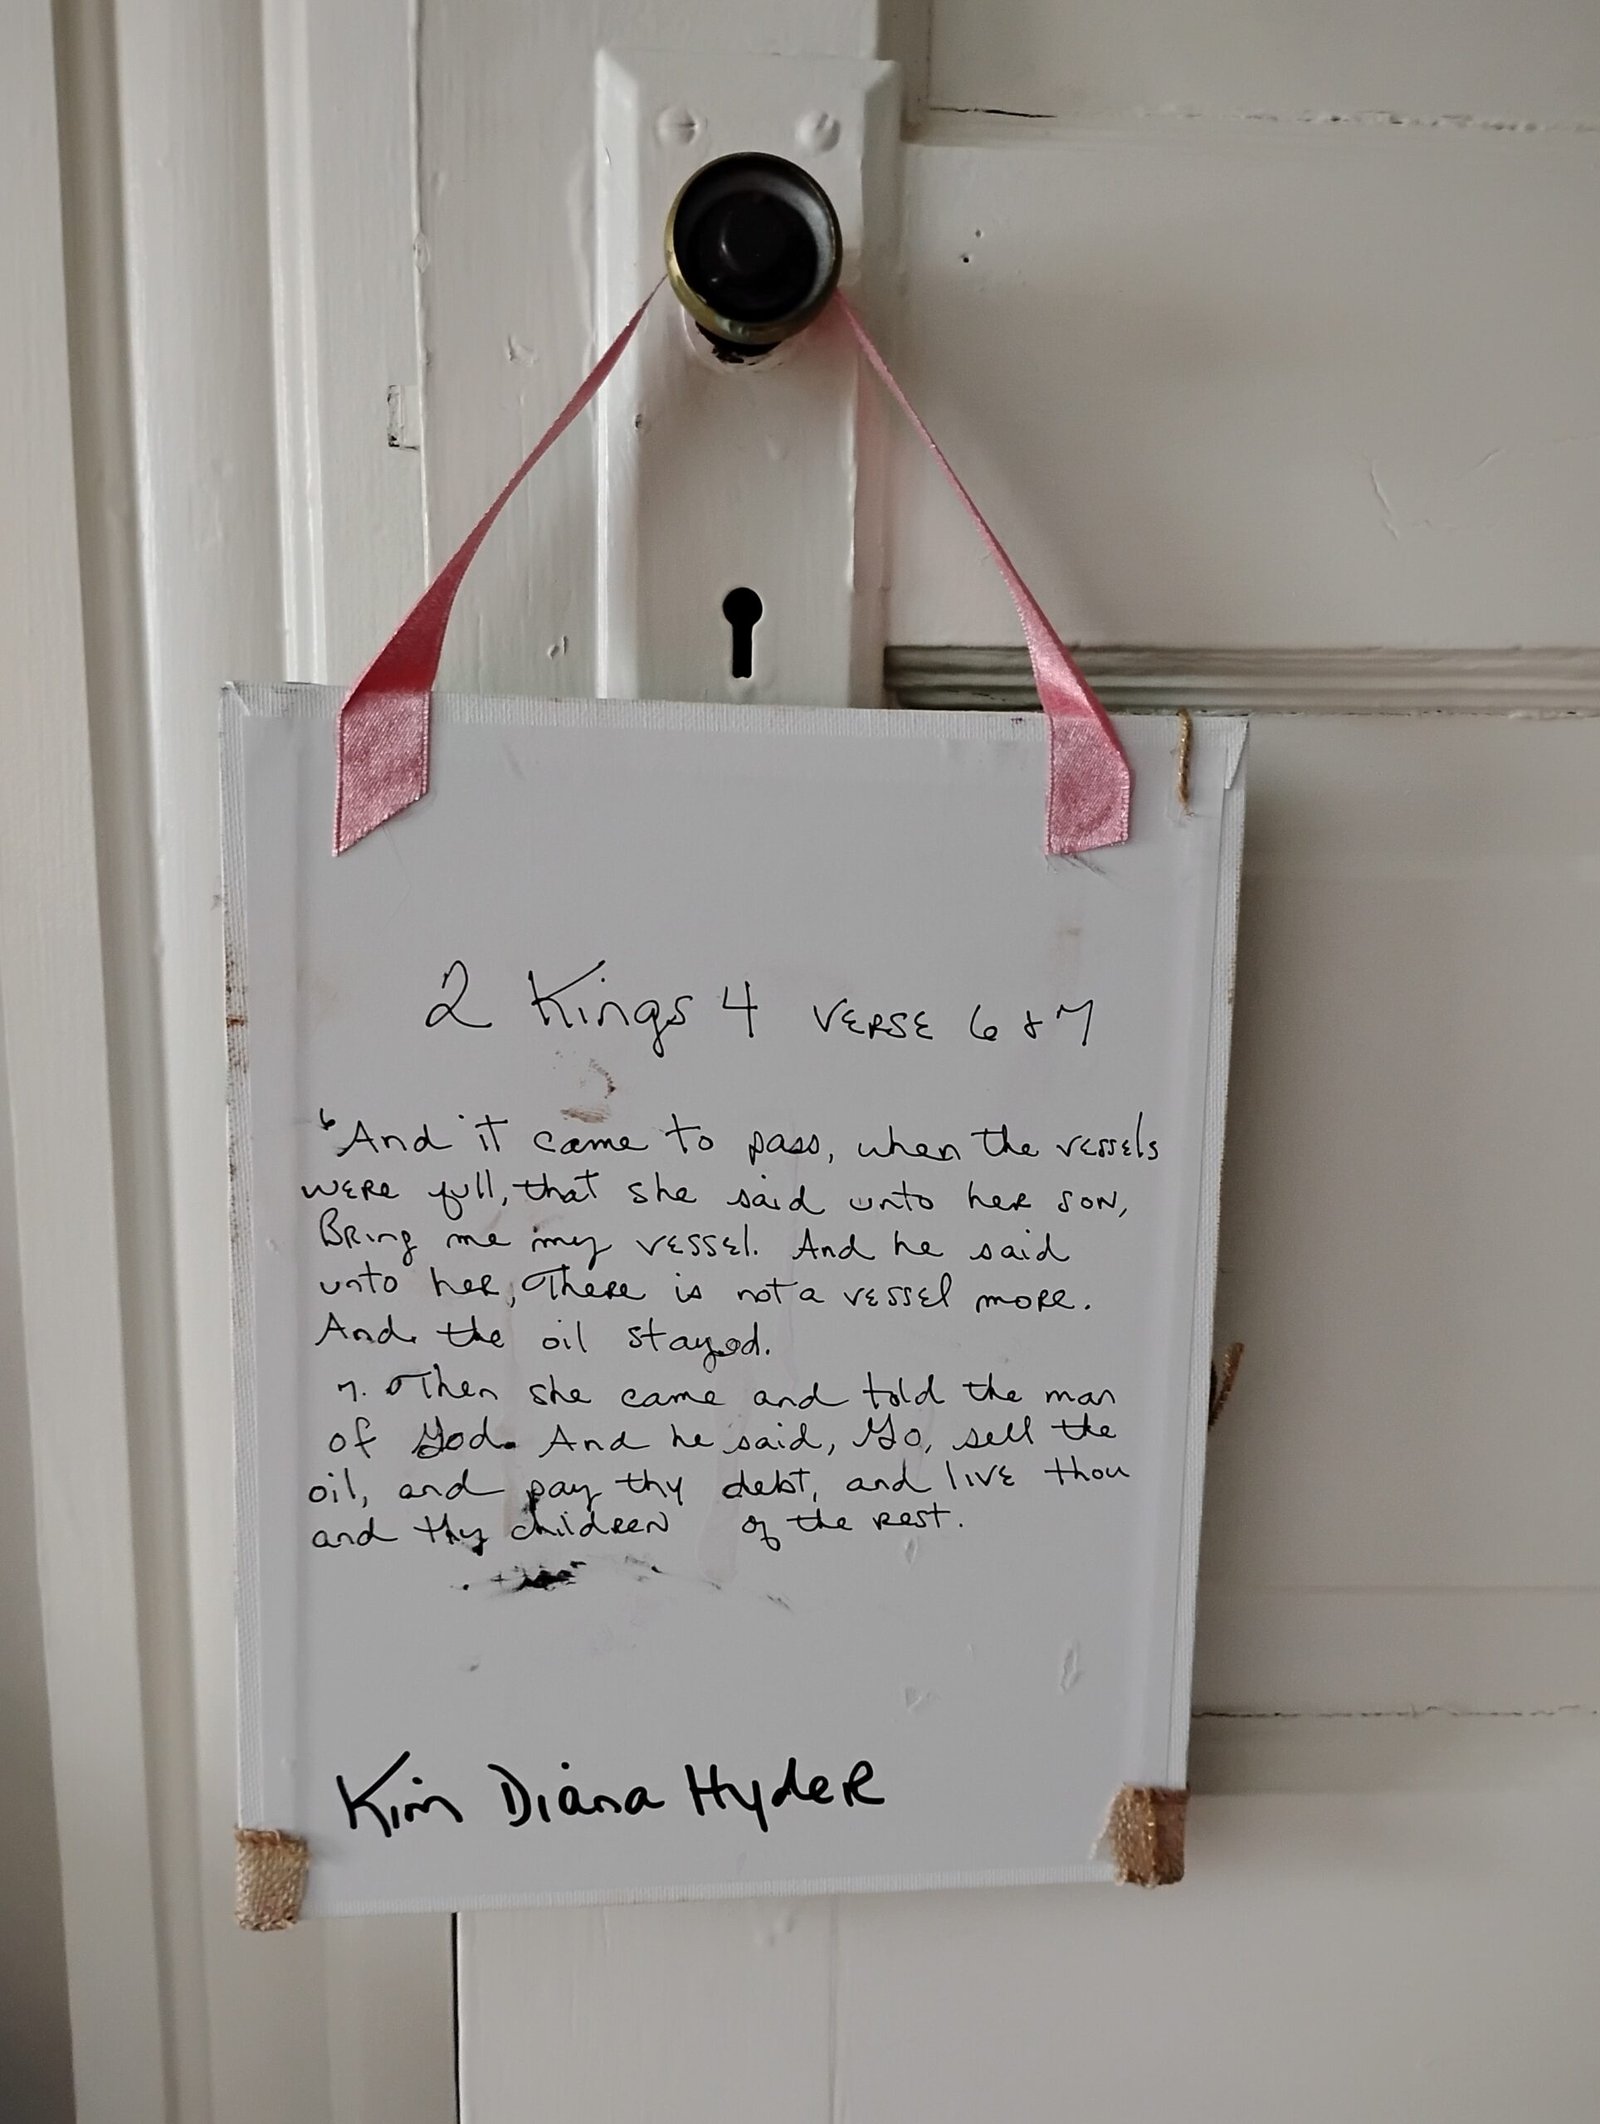 2 Kings 4 VERSE 6 & 7
6 And it came to pass, when the vessels
were full, that she said unto her son,
Bring me my vessel. And he said
unto her, There is not a vessel more.
And the oil stayed.
7. Then she came and told the man
of God. And he said, Go, sell the
oil, and pay thy debt, and live thou
and thy children of the rest.
Kim Diana Hyder